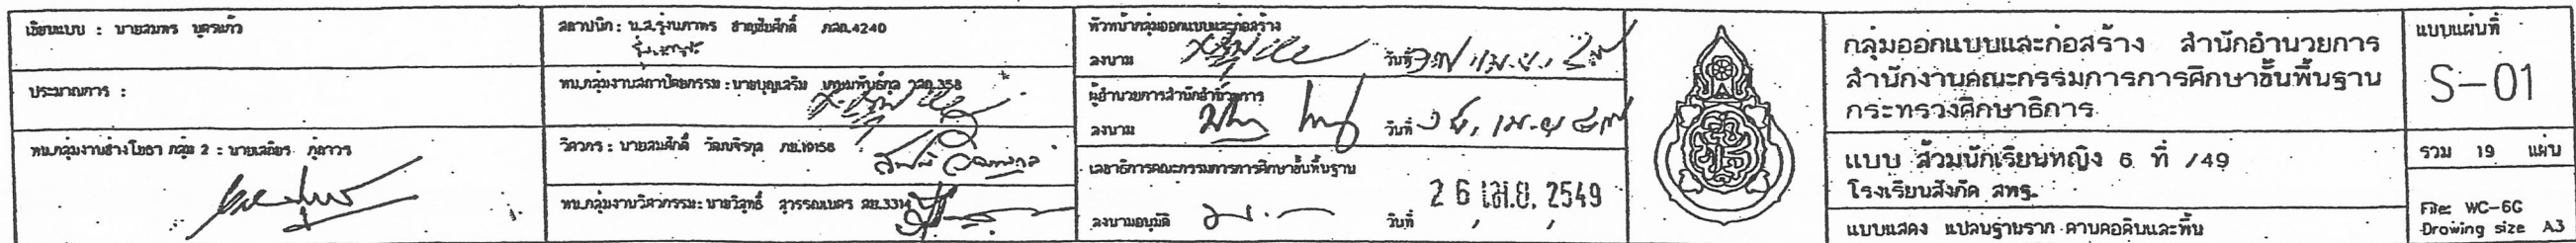 เขียนแบบ : นายสมพร บุตรแก้ว
ประมาณการ :
หน.กลุ่มงานช่างโยธา กลุ่ม 2 : นายเสถียร
สถาปนิก : น.ส.รุ่งนภาพร ชาญชัยศักดิ์ ภสถ.4240
หน.กลุ่มงานสถาปัตยกรรม : นายบุญเสริม
วิศวกร : นายสมศักดิ์ วัฒนจิรกุล ภย.19158
หน.กลุ่มงานวิศวกรรม: นายวิสุทธิ์ สุวรรณเนตร สย.3314
หัวหน้ากลุ่มออกแบบและก่อสร้าง
ลงนาม วันที่
ผู้อำนวยการสำนักอำนวยการ
ลงนาม วันที่
เลขาธิการคณะกรรมการการศึกษาขั้นพื้นฐาน
ลงนามอนุมัติ วันที่ 26 เม.ย. 2549
กลุ่มออกแบบและก่อสร้าง สำนักอำนวยการ
สำนักงานคณะกรรมการการศึกษาขั้นพื้นฐาน
กระทรวงศึกษาธิการ
แบบ ส้วมนักเรียนหญิง 6 ที่ /49
โรงเรียนสังกัด สพฐ.
แบบแสดง แปลนฐานราก คานคอดินและพื้น
แบบแผ่นที่
S-01
รวม 19 แผ่น
File: WC-6G
Drowing size A3